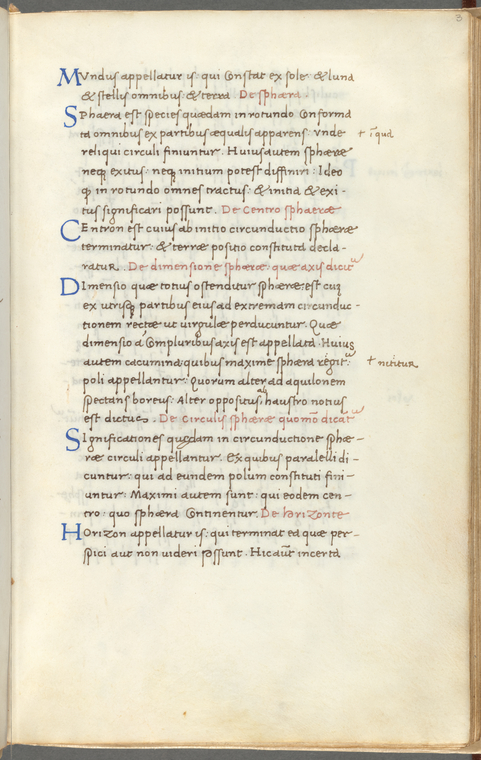 3
MVndus appellatur is: qui Constat ex sole: & luna
& stellis omnibus: & terra De sphæra.
SPhaera est species quædam in rotundo Conforma
ta omnibus ex partibus æqualis apparens: vnde † ī qua
reliqui circuli finiuntur. Huius autem sphæræ
neq; exitus: neq; initium potest diffiniri: Ideo
q in rotundo omnes tractus: & initia & exi-
tus significari possunt. De Centro sphaeræ
CEntron est cuius ab initio circunductio sphæræ
terminatur: & terræ positio constituta decla-
ratur. De dimensione sphæræ: quæ axis dicit
DImensio quæ totius ostenditur sphæræ: est cum
ex utrisq; partibus eius ad extremam circunduc-
tionem rectæ ut uirgulæ perducuntur. Quæ
dimensio a Compluribus axis est appellata. Huius
autem cacumina: quibus maxime sphæra regit † nititur
poli appellantur. Quorum alter ad aquilonem
spectans boreus: Alter oppositus haustro notius
est dictus. De Circulis sphæræ quomō dicat
SIgnificationes quædam in circunductione sphæ-
ræ circuli appellantur. Ex quibus paralelli di-
cuntur: qui ad eundem polum constituti fini-
untur: Maximi autem sunt: qui eodem cen-
tro: quo sphæra Continentur. De horizonte
HOrizon appellatur is: qui terminat ea quæ per-
spici aut non uideri possunt. Hic aūt incerta